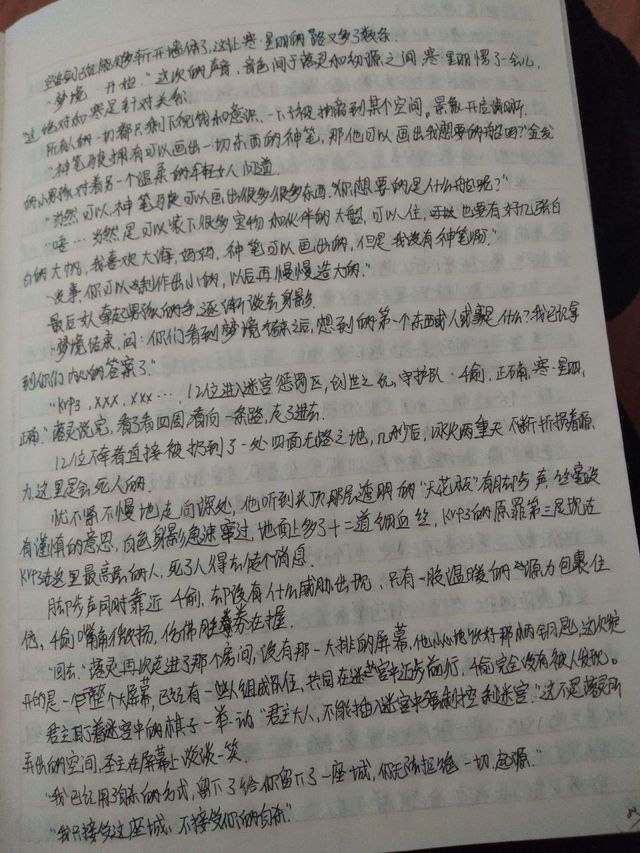 到已经能够斩开墙体了,这让寒·星明的路又多了数条。
“梦境—开启。”这次的声音,音色间于落灵和幼源之间,寒·星明愣了一会儿,
这绝对和寒是针对关系。
所有人的一切都只剩下视觉和意识,一下子被抽离到某个空间。景象开启清晰。
“神笔马良拥有可以画出一切东西的神笔,那他可以画出我想要的船吗?”金发
的小男孩对着另一个温柔的年轻女人问道。
“当然可以,神笔马良可以画出很多很多东西,你想要的是什么船呢?”
“嗯…当然是可以装下很多宝物和伙伴的大船,可以住,也要有好几张白
白的大帆,我喜欢大海,妈妈,神笔可以画出的,但是我没有神笔啊。”
“没事,你可以制作出小的,以后再慢慢造大的。”
最后女人牵起男孩的手,逐渐淡去身影。
“梦境结束,问:你们看到梦境结束之后,想到的第一个东西或人或事是什么?我已经拿
到你们内心的答案了。”
“kr93,xxx,xxx…,12位进入迷宫惩罚区,创世之纪,守护队·千俞,正确,寒·星明,
正确。”落灵说完,看了看四周,看向一条路,走了进去。
12位不幸者直接被扔到了一处四面无路之地,几秒后,冰火两重天不断折损着源
力,这里是会死人的。
忧不紧不慢地走向深处,他听到头顶那层透明的“天花板”有脚步声,丝毫没
有谨慎的意思,白色身影急速穿过,地面上多了十二道细血丝,kr93的原罪第三尾现在
kr93在这里最高层的人,死了人得去传个消息。
脚步声同时靠近千俞,却没有什么威胁出现,只有一股温暖的源力包裹住
他,千俞嘴角微扬,仿佛胜券在握。
“回去。”落灵再次走进了那个房间,没有那一大排的屏幕,他小心地收好那柄钥匙,这次绽
开的是一个整个大屏幕,已经有一些人组成队伍,共同在迷宫中迈步前行,千俞完全没有被人发现。
君主盯着迷宫中的棋子一举一动“君主大人,不能插入迷宫中强制控制迷宫。”这不是落灵所
弄出的空间,圣主在屏幕上淡淡一笑。
“我已经用自杀的名式,留下了给你留下了一座城,你无法拒绝一切起源。”
“我只接受这座城,不接受你的自杀。”